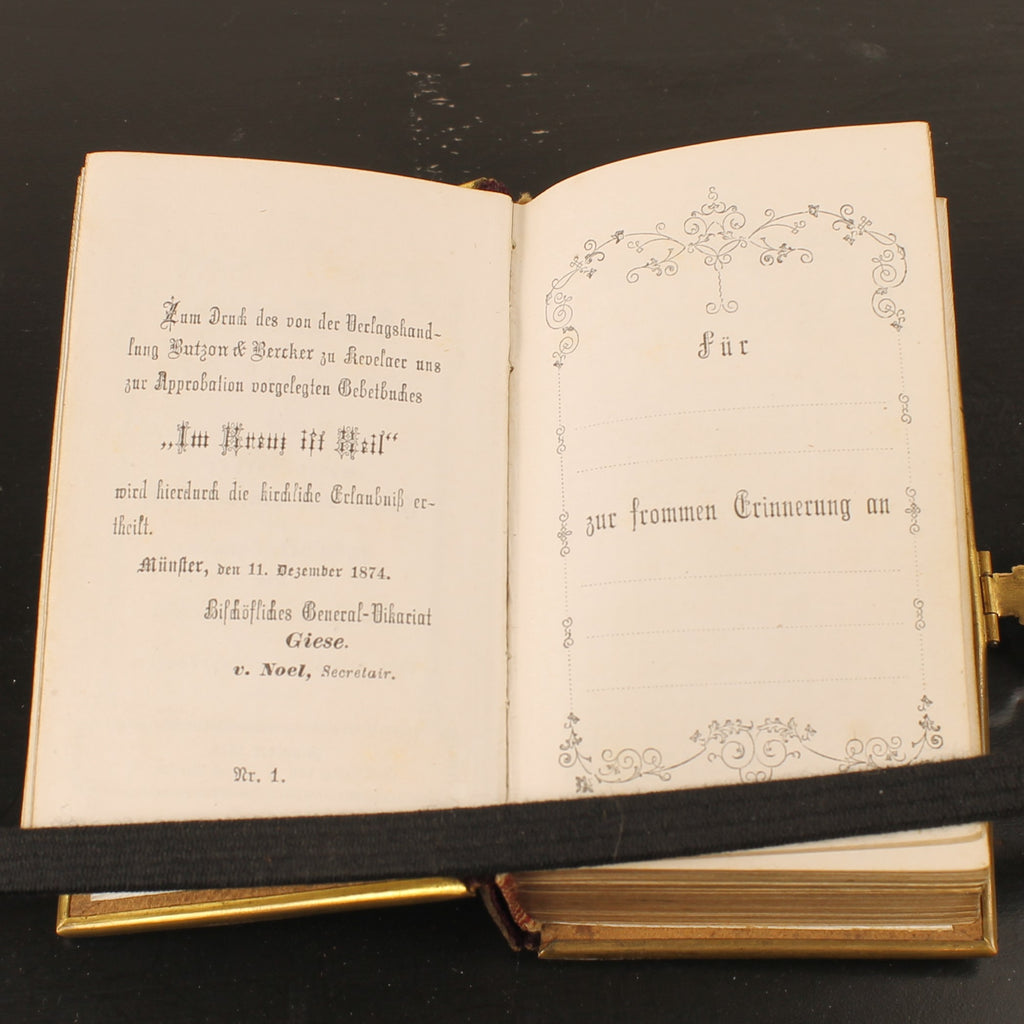 Zum Druck des von der Verlagshand-
lung Butzon & Bercker zu Kevelaer uns
zur Approbation vorgelegten Gebetbuches
„Im Kreuz ist Heil“
wird hierdurch die kirchliche Erlaubniß er-
theilt.
Münster, den 11. Dezember 1874.
Bischöfliches General-Vikariat
Giese.
v. Noel, Secretair.
Nr. 1.
Für
zur frommen Erinnerung an